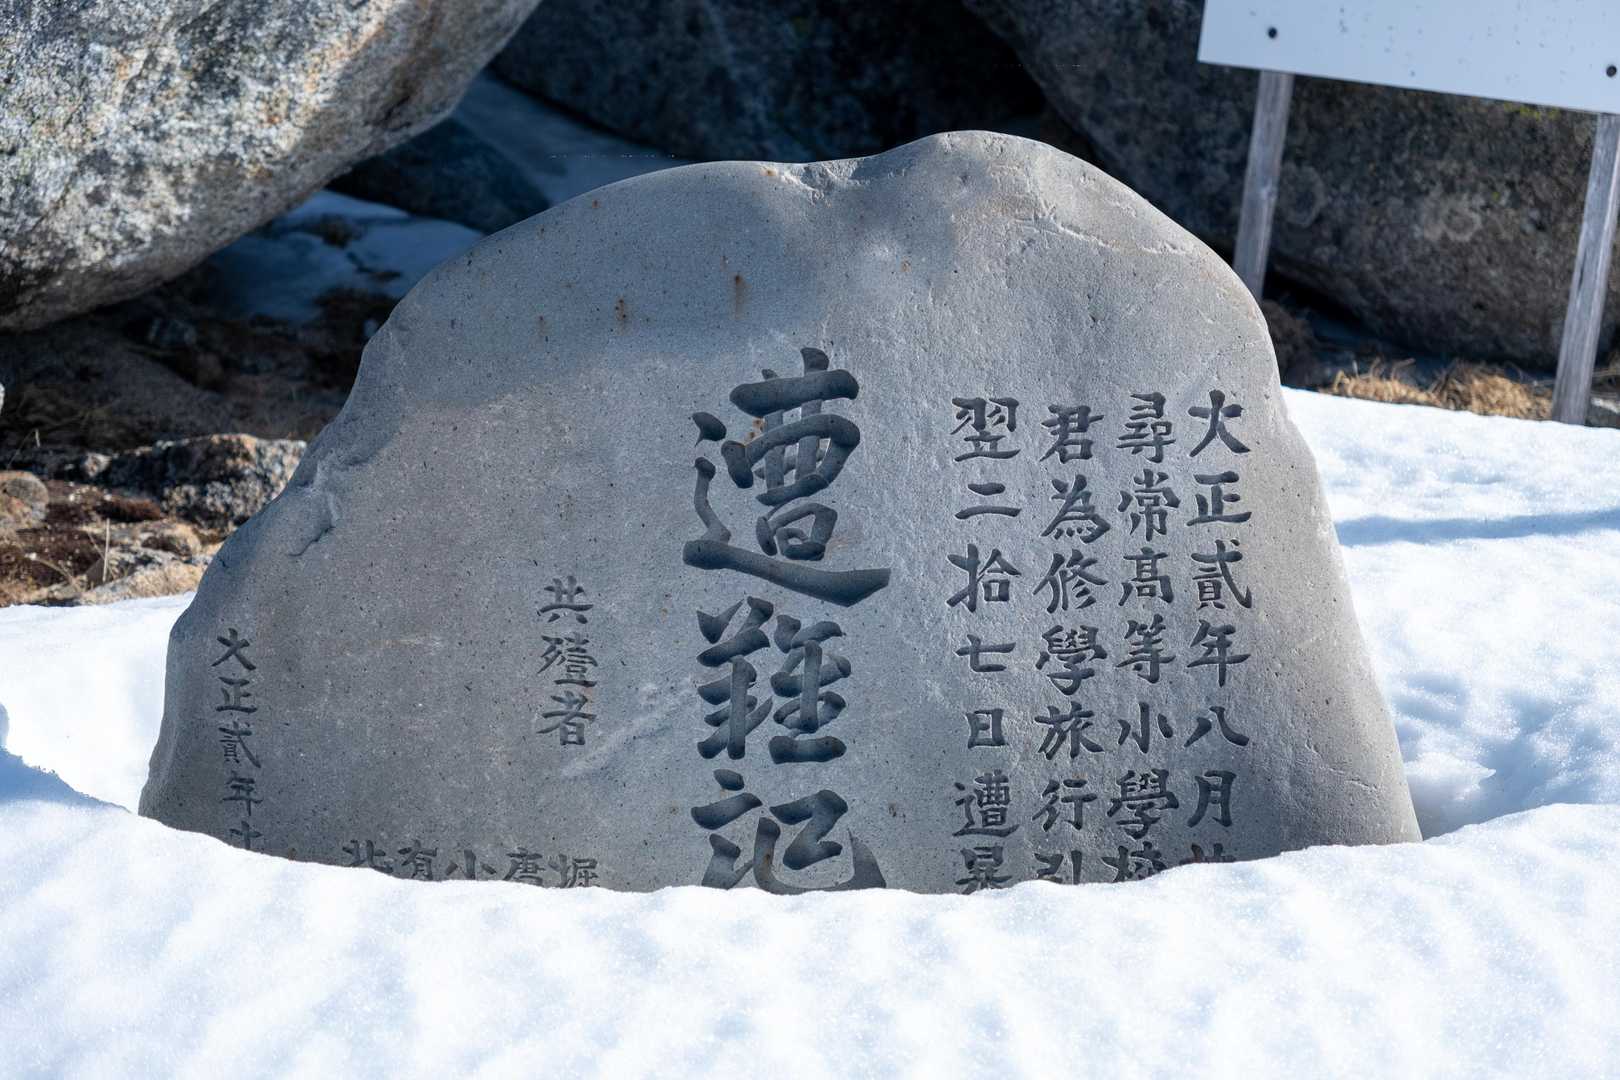 大正貳年八月
尋常高等小學校
君為修學旅行引
翌二拾七日遭暴
遭難記
共殪者
堀
唐
小
有
北
大正貳年十